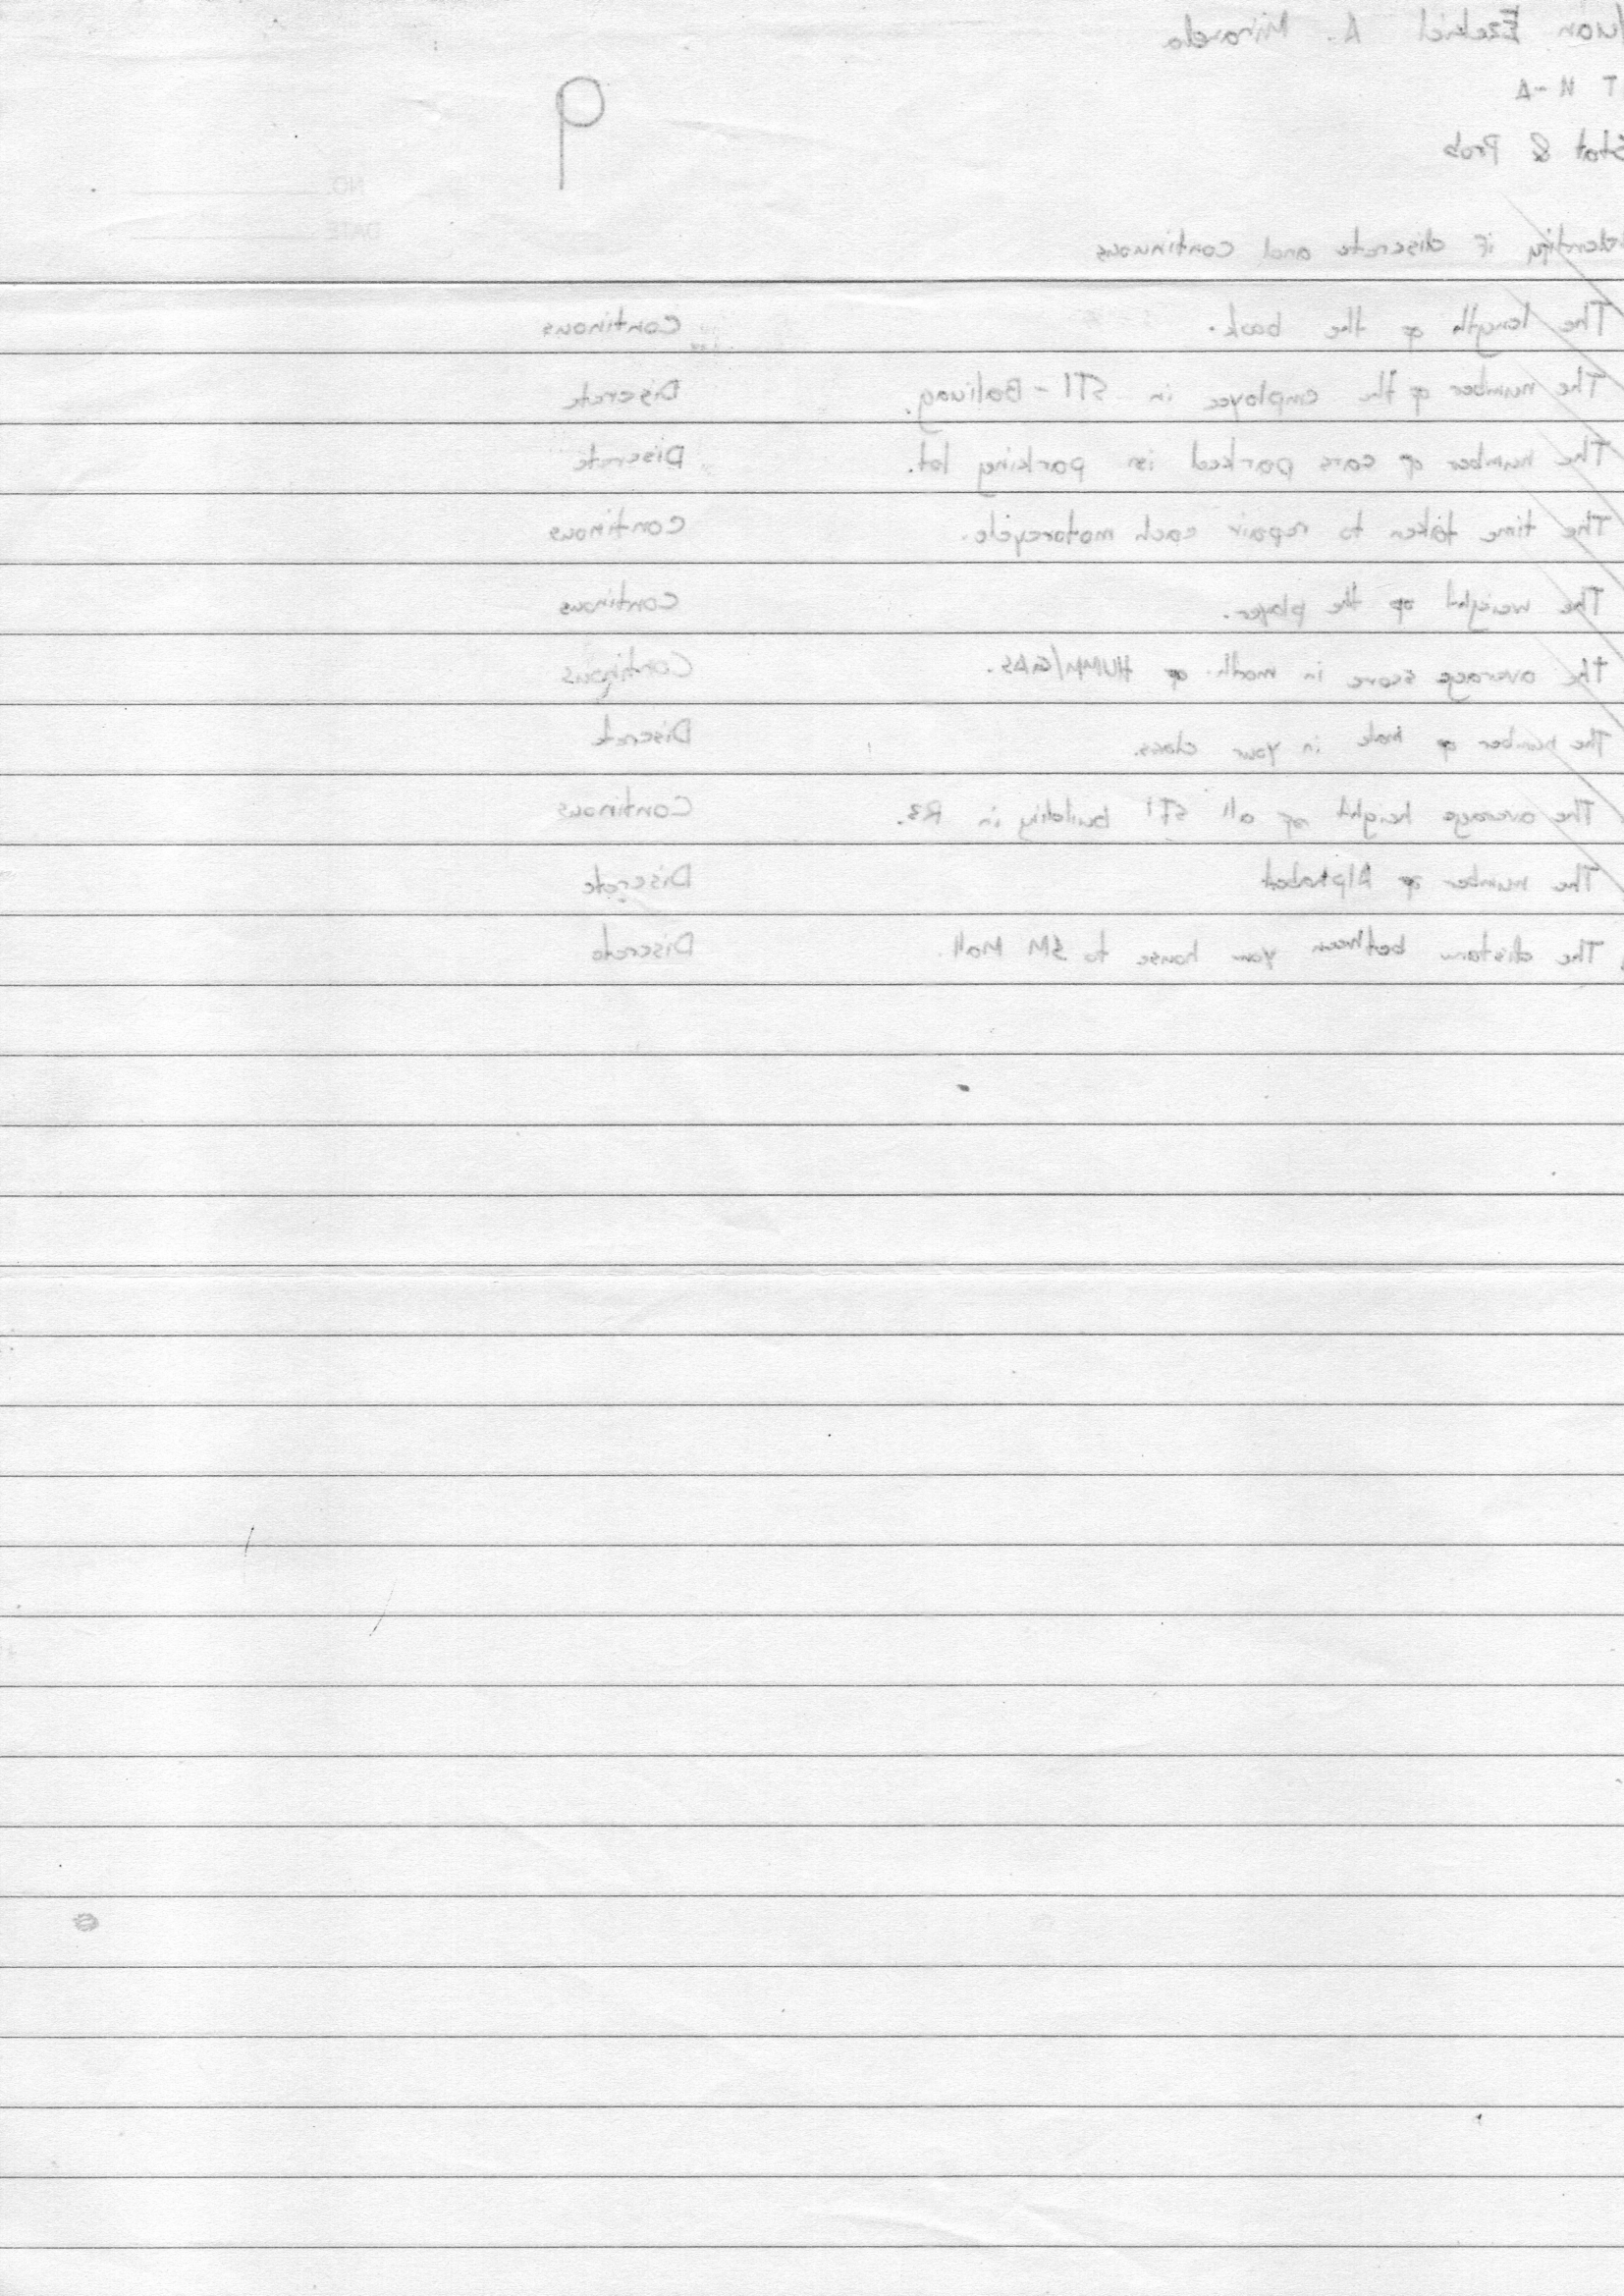 Juan Ezekiel A. Miranda
T 11-A
Stat & Prob
9
NO.
DATE
Identify if discrete and continuous
The length of the book. Continous
The number of the employee in STI - Baliuag. Discrete
The number of cars parked in parking lot. Discrete
The time taken to repair each motorcycle. Continous
The weight of the player. Continous
The average score in math of HUMM/GAS. Continous
The number of male in your class. Discrete
The average height of all STI building in R3. Continous
The number of Alphabet Discrete
The distanc between your house to SM Mall. Discrete